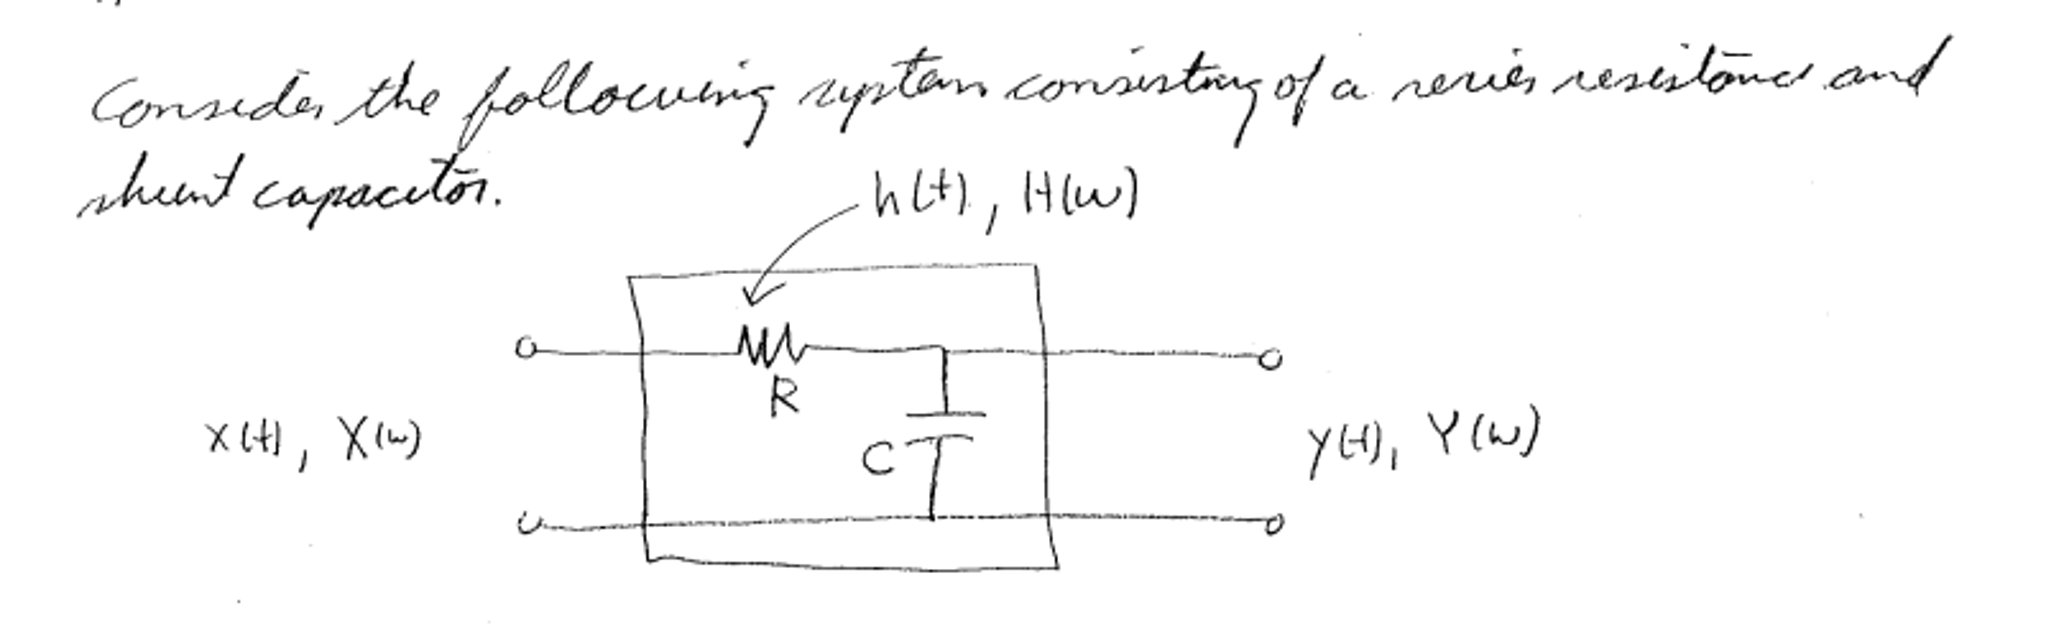 Consider the following system consisting of a series resistance and
shunt capacitor.
h(t), H(w)
R
C
x(t), X(w)
y(t), Y(w)